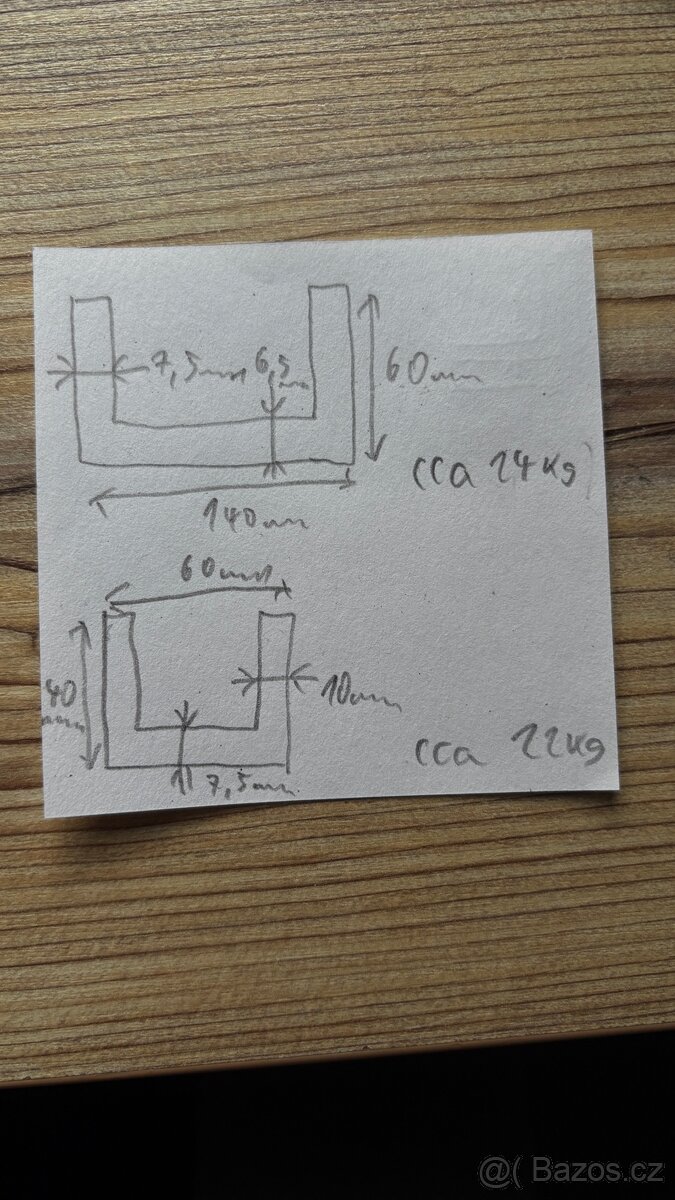 7,5mm 6,5
mm
60mm
cca 14kg
140mm
60mm
40
mm
10mm
cca 12kg
7,5mm
@( Bazos.cz